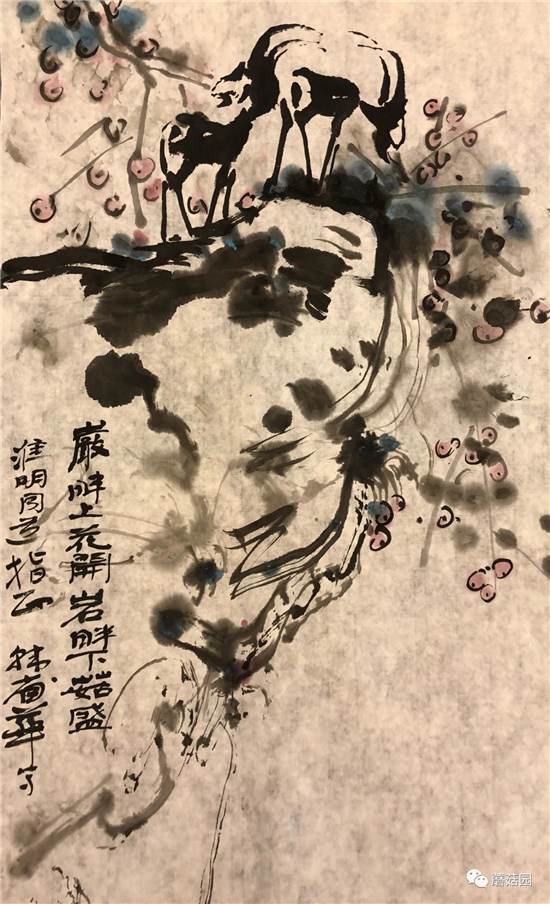 巖畔上花開岩畔下菇盛
淮明同道指正 韩省華写
蘑菇园